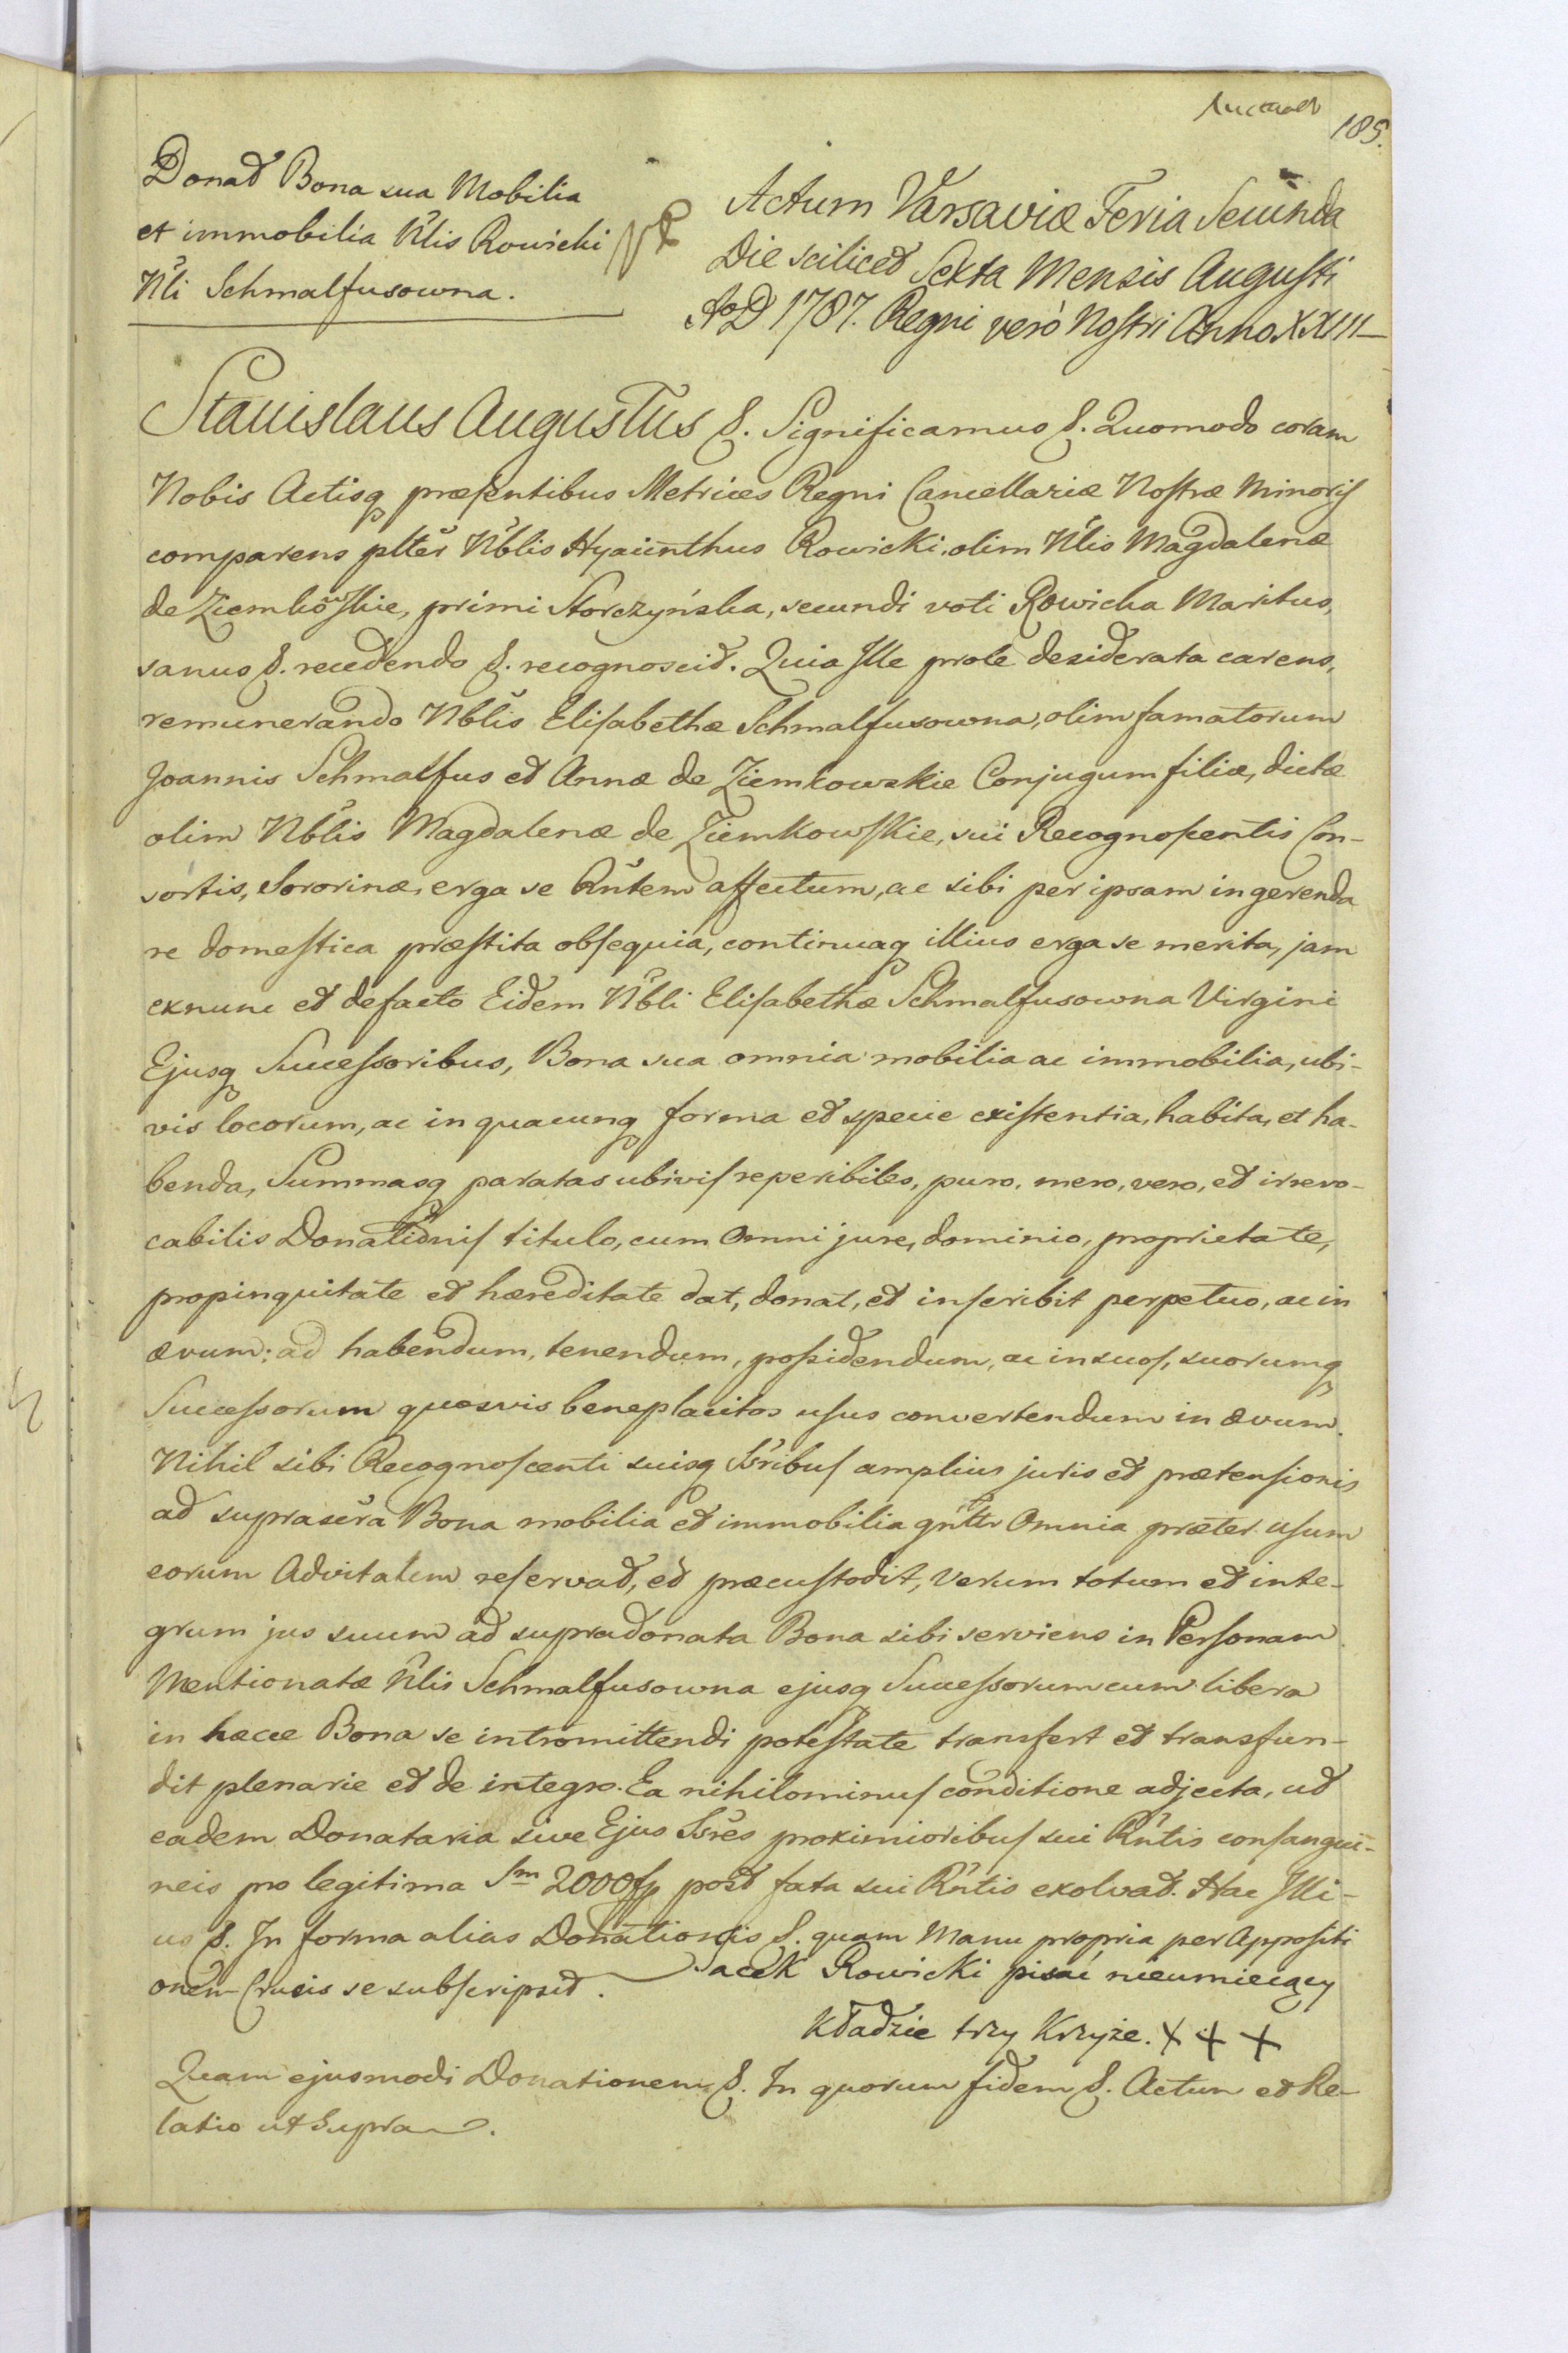 185.
Donat Bona sua Mobilia
et immobilia Nlis Rowicki
Nli Schmalfusowna.
Actum Varsaviæ Feria Secunda
Die scilicet Sexta Mensis Augusti
AoD 1787. Regni verò Nostri Anno XXIII
Stanislaus Augustus &. Significamus &. Quomodo coram
Nobis Actisq præsentibus Metrices Regni Cancellariæ Nostræ Minoris
comparens plter Nblis Hyacinthus Rowicki, olim Nlis Magdalenæ
de Ziemkowskie, primi Storczyńska, secundi voti Rowicka Maritus,
sanus &. recedendo &. recognoscit. Quia Ille prole desiderata carens,
remunerando Nblis Elisabethæ Schmalfusowna, olim famatorum
Joannis Schmalfus et Annæ de Ziemkowskie Conjugum filiæ, dictæ
olim Nblis Magdalenæ de Ziemkowskie, sui Recognoscentis Con-
sortis, Sororinæ, erga se Rntem affectum, ac sibi per ipsam in gerenda
re domestica præstita obsequia, continuaq illius erga se merita, jam
exnunc et defacto Eidem Nbli Elisabethæ Schmalfusowna Virgini
Ejusq Successoribus, Bona sua omnia mobilia ac immobilia, ubi-
vis locorum, ac in quacunq forma et specie existentia, habita, et ha-
benda, Summasq paratas ubivis reperibiles, puro, mero, vero, et irrevo-
cabilis Donationis titulo, cum Omni jure, dominio, proprietate,
propinquitate et hæreditate dat, donat, et inscribit perpetuo, ac in
ævum: ad habendum, tenendum, possidendum, ac in suos, suorumq
Successorum quosvis beneplacitos usus convertendum in ævum.
Nihil sibi Recognoscenti suisq Ssribus amplius juris et prætensionis
ad suprascra Bona mobilia et immobilia gnltr Omnia præter usum
eorum Advitalem reservat, et præcustodit, Verum totum et inte-
grum jus suum ad supradonata Bona sibi serviens in Personam
Mentionatæ Nlis Schmalfusowna ejusq Successorum cum libera
in hæcce Bona se intromittendi potestate transfert et transfun-
dit plenarie et de integro. Ea nihilominus conditione adjecta, ut
eadem Donataria sive Ejus Ssres proximioribus sui Rntis consangui-
neis pro legitima Sm 2000 fp post fata sui Rntis exolvat. Hac Illi-
us &. In forma alias Donationis &. quam Manu propria per Appositi
onem Crucis se subscripsit. Jacek Rowicki pisać nieumieiący
Kładzie trzy Krzyże. + + +
Quam ejusmodi Donationem &. In quorum fidem &. Actum et Re-
latio ut Supra.